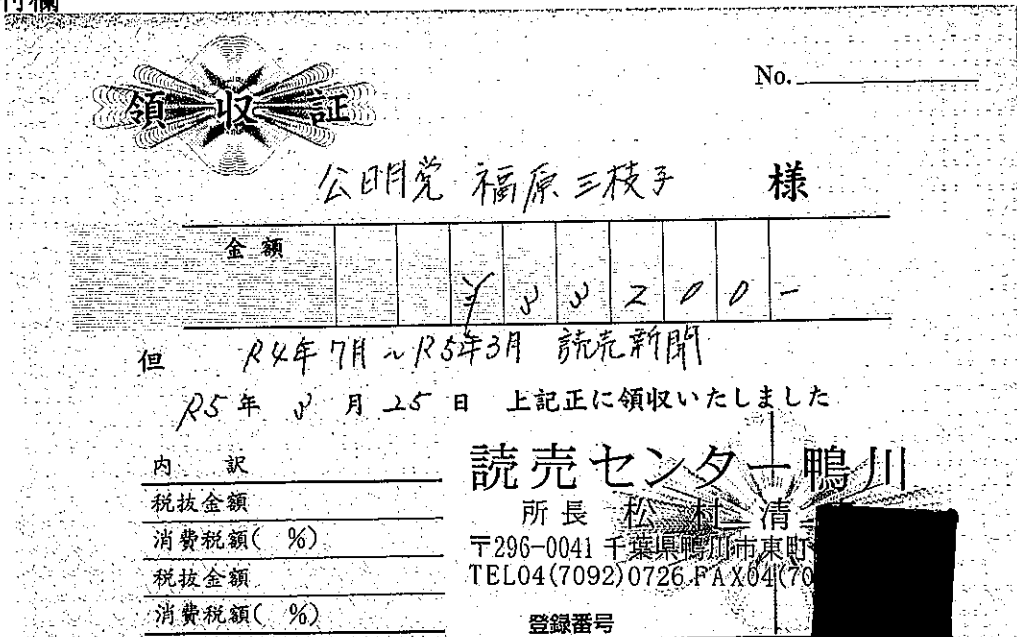 付欄
領収証
No.
公明党 福原三枝子 様
金額 ¥33200-
但 R4年7月~R5年3月 読売新聞
R5年3月25日 上記正に領収いたしました
内 訳
税抜金額
消費税額( %)
税抜金額
消費税額( %)
読売センター鴨川
所長 松村清
〒296-0041 千葉県鴨川市東町
TEL04(7092)0726 FAX04(70
登録番号